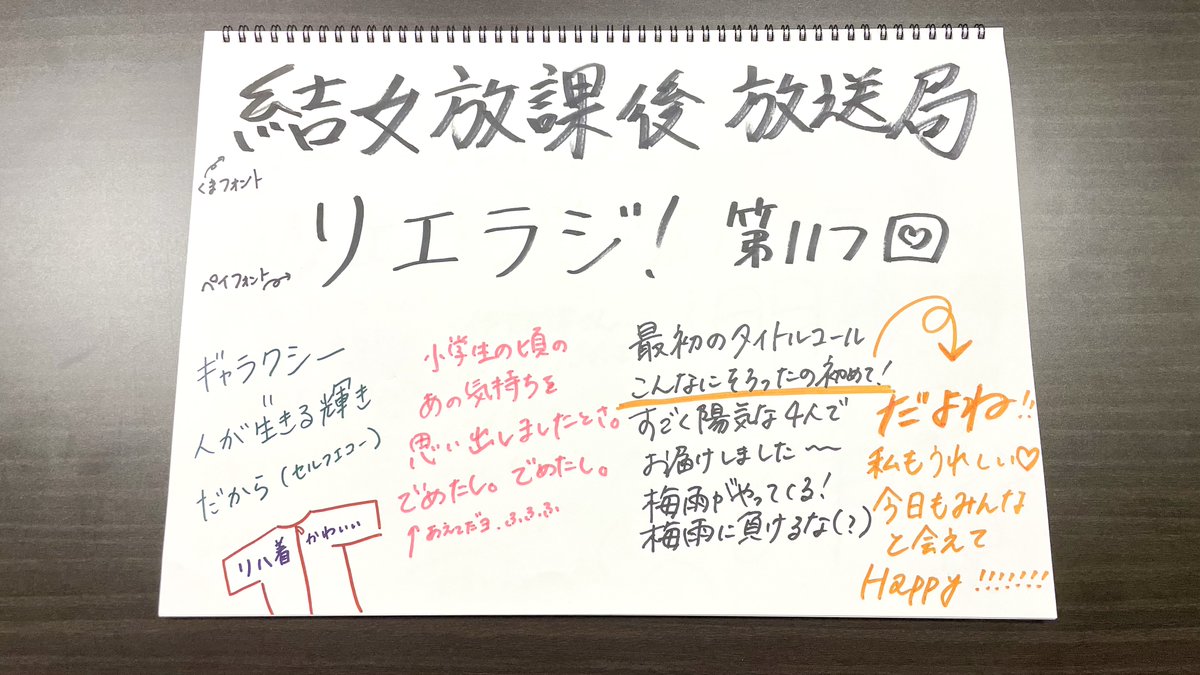 結女放課後放送局
くまフォント
リエラジ! 第117回
ペイフォント
ギャラクシー
人が生きる輝き
だから(セルフエコー)
リハ着 かわいい
小学生の頃の
あの気持ちを
思い出しましたとさ。
でめたし。でめたし。
↑あえてだヨ.ふふふ
最初のタイトルコール
こんなにそろったの初めて!
すごく陽気な4人で
お届けしました〜
梅雨がやってくる!
梅雨に負けるな(?)
だよね!!
私もうれしい♡
今日もみんな
と会えて
Happy!!!!!!!